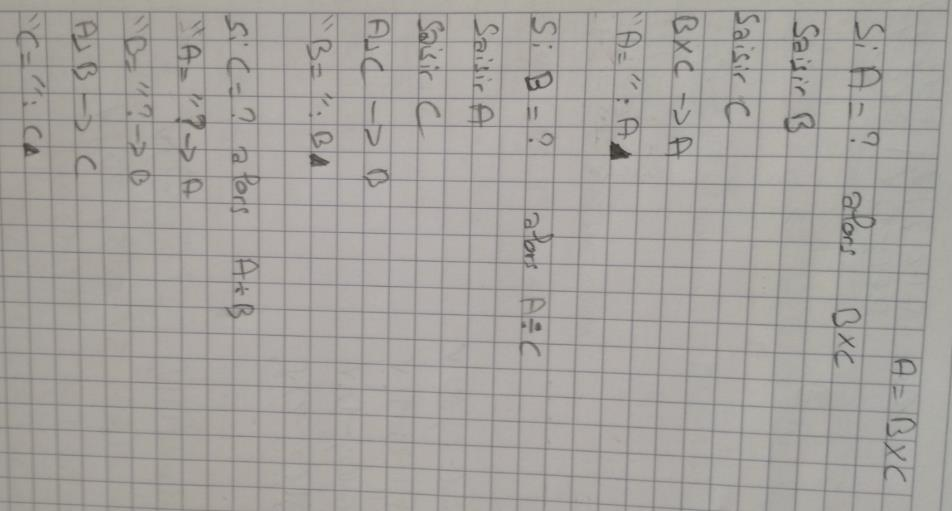 A = B×C
Si A = ? alors B×C
Saisir B
Saisir C
B×C → A
"A=": A◢
Si B = ? alors A÷C
Saisir A
Saisir C
A⌟C → B
"B=": B◢
Si C = ? alors A÷B
"A="? → A
"B="? → B
A⌟B → C
"C=": C◢